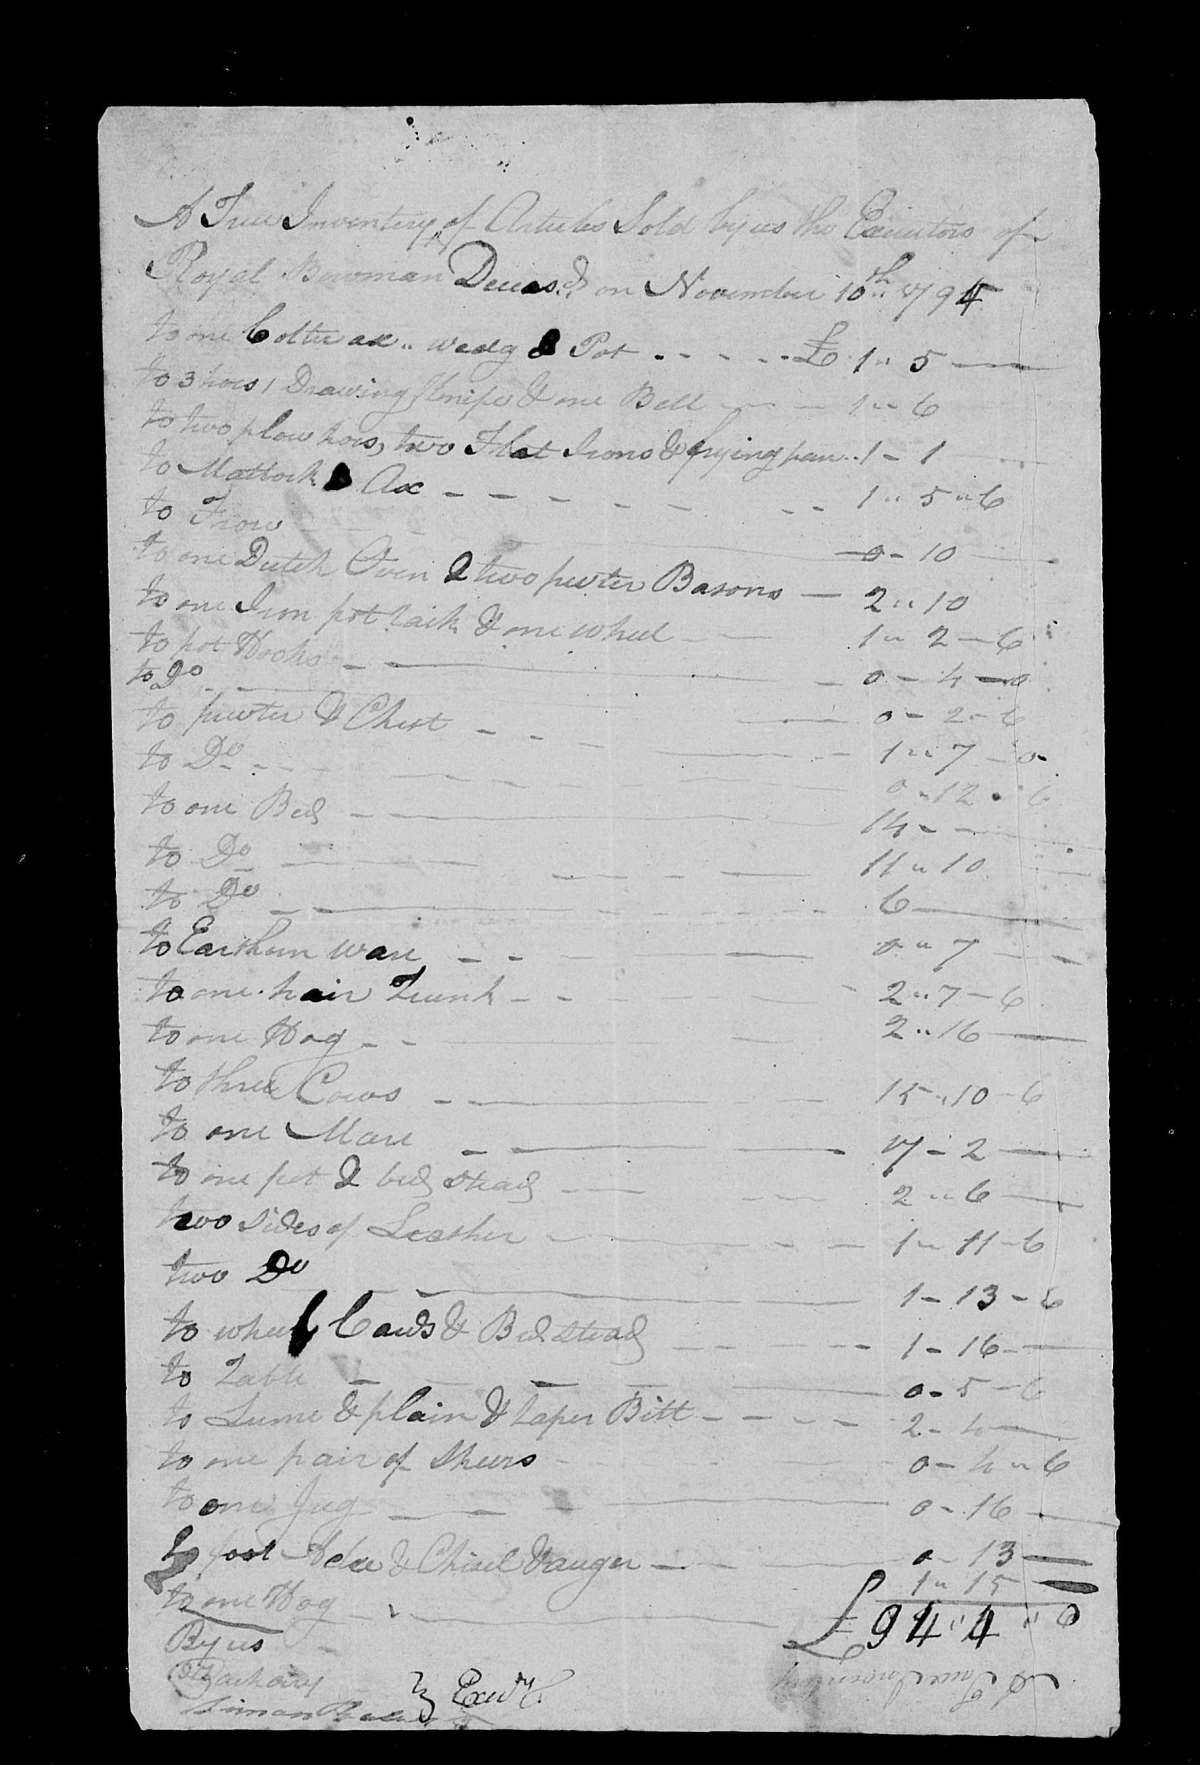 A True Inventery of Articles Sold by us the Executors of
Royal Bowman Deceasd on November 10th 1794
to one Colter ax wedg & Pot £ 1 " 5
to 3 hoes 1 Drawing Knife & one Bell 1 " 6
to two plow hoes, two Flat Irons & frying pan 1 - 1
to Mattock & Ax 1 " 5 " 6
to Frow 0 - 10
to one Dutch Oven & two pewter Basons 2 " 10
to one Iron pot rack & one wheel 1 " 2 - 6
to pot Hooks 0 - 4 - 0
to Do 0 - 2 - 6
to pewter & Chest 1 " 7 - 0
to Do 0 " 12 - 6
to one Bed 14
to Do 11 " 10
to Do 6
to Earthen ware 0 " 7
to one hair Trunk 2 " 7 - 6
to one Hog 2 " 16
to three Cows 15 " 10 - 6
to one Mare 17 - 2
to one pot & bed stead 2 " 6
two sides of Leather 1 " 11 - 6
two Do 1 - 13 - 6
to wheel Cards & Bed stead 1 - 16
to Table 0 - 5 - 6
to Lume & plain & taper Bitt 2 - 4
to one pair of Sheers 0 - 4 " 6
to one Jug 0 - 16
to foot Adze & Chisel & auger 0 - 13
to one Hog 1 " 15
£ 94 " 4 " 6
By us
Zachary
Simon Exutrs
A True Inventery